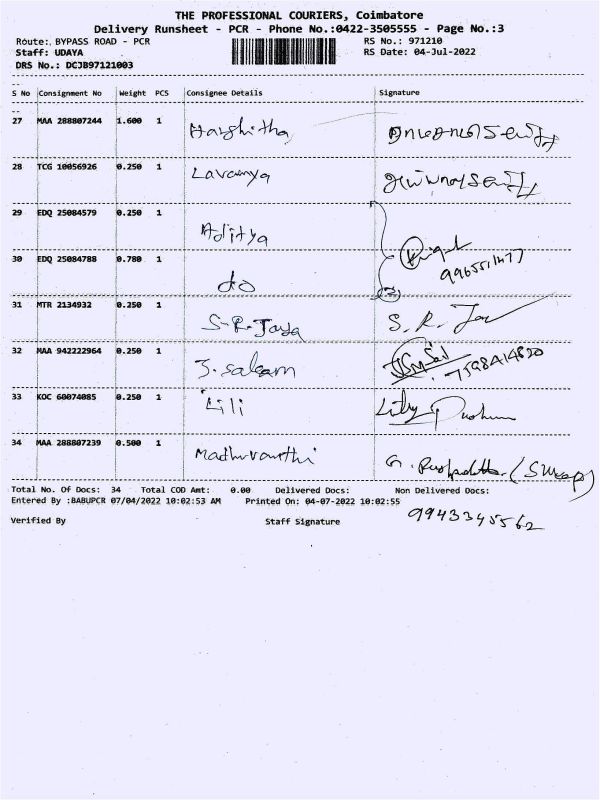 THE PROFESSIONAL COURIERS, Coimbatore
Delivery Runsheet - PCR - Phone No.:0422-3505555 - Page No.:3
Route: BYPASS ROAD - PCR RS No.: 971210
Staff: UDAYA RS Date: 04-Jul-2022
DRS No.: DCJB97121003
S No Consignment No Weight PCS Consignee Details Signature
27 MAA 288807244 1.600 1 Harshitha
28 TCG 10056926 0.250 1 Lavanya
29 EDQ 25084579 0.250 1 Aditya
30 EDQ 25084788 0.780 1 do
31 MTR 2134932 0.250 1 S-R.Jaya S. R. Jay
32 MAA 942222964 0.250 1 J. Salaam
33 KOC 60074085 0.250 1 Lili
34 MAA 288807239 0.500 1 Madhuvanthi
Total No. Of Docs: 34 Total COD Amt: 0.00 Delivered Docs: Non Delivered Docs:
Entered By :BABUPCR 07/04/2022 10:02:53 AM Printed On: 04-07-2022 10:02:55
9943345562
Verified By Staff Signature